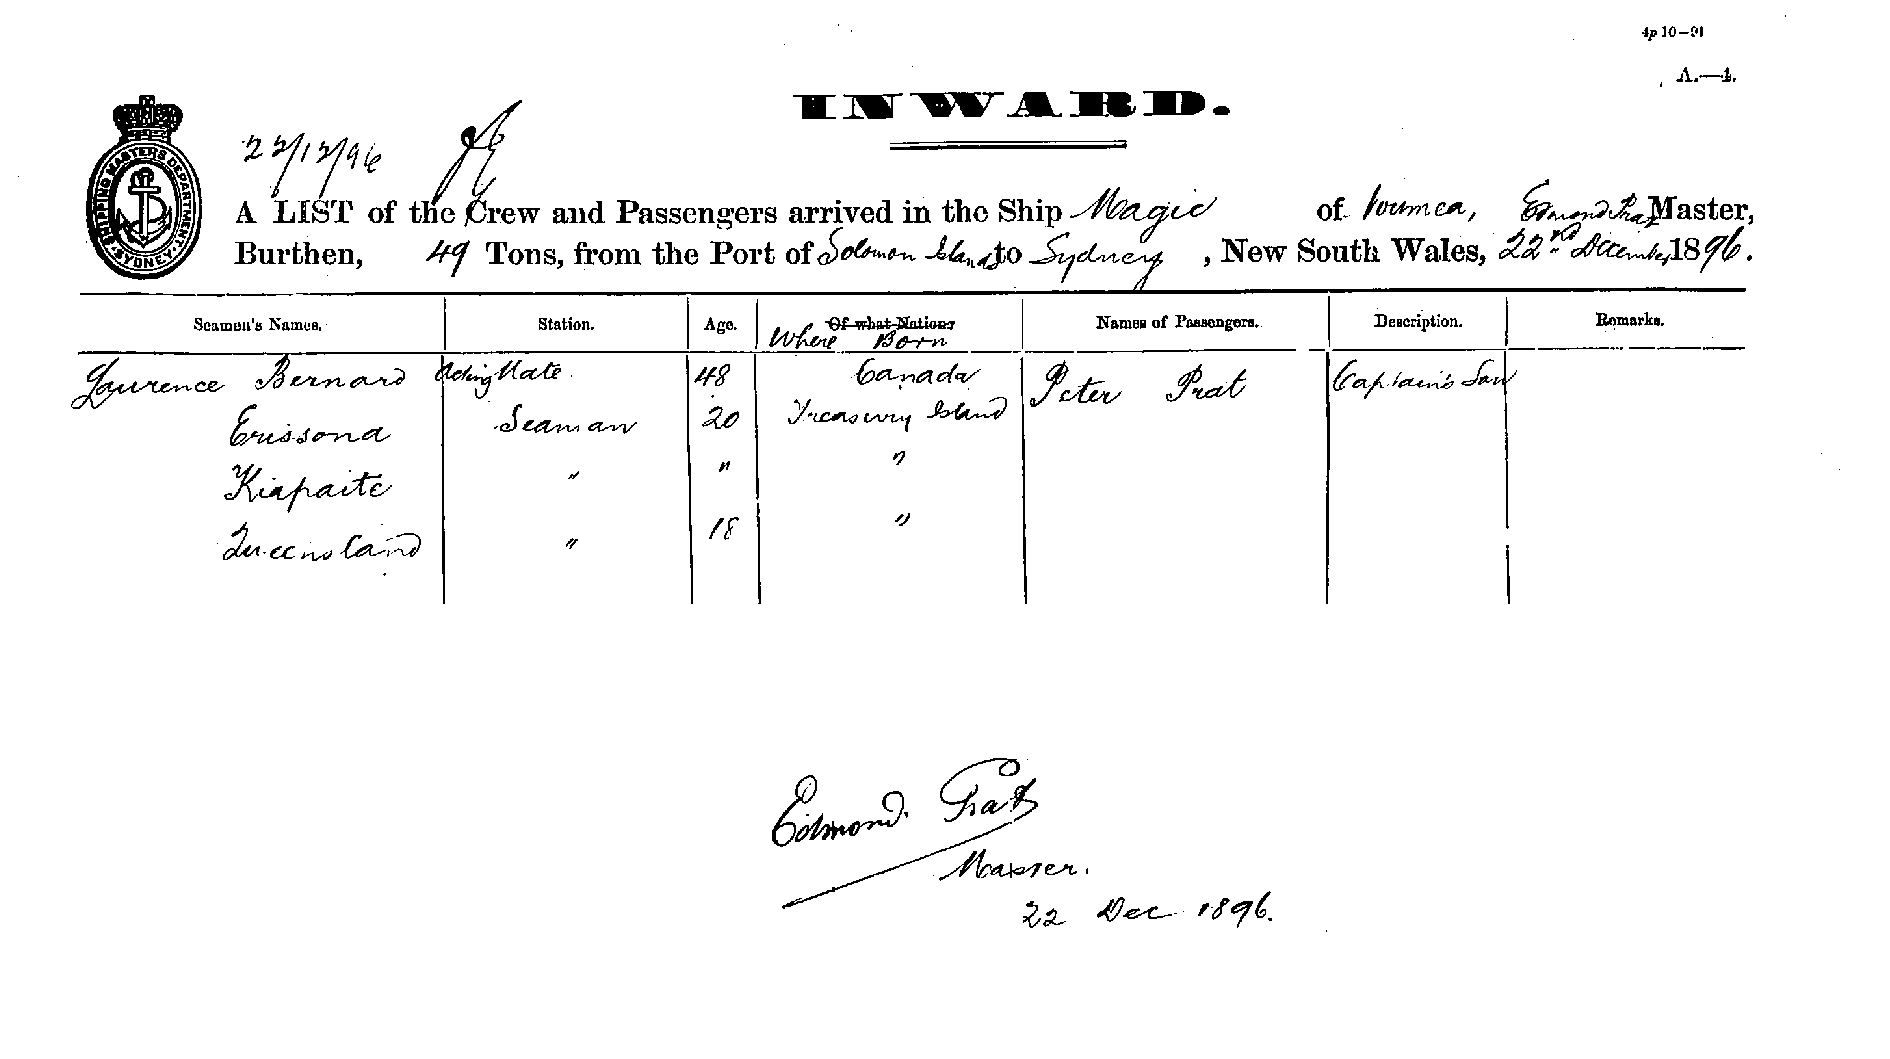 4p 10—91
A.—4.
INWARD.
SHIPPING MASTERS DEPARTMENT. SYDNEY.
22/12/96
A LIST of the Crew and Passengers arrived in the Ship Magic of Noumea, Edmond Prat Master,
Burthen, 49 Tons, from the Port of Solomon Islands to Sydney, New South Wales, 22nd December 1896.
Seamen's Names. Station. Age. Of what Nations Names of Passengers. Description. Remarks.
Where Born
Laurence Bernard Acting Mate 48 Canada Peter Prat Captain's Son
Erissona Seaman 20 Treasury Island
Kiapaite " " "
Queensland " 18 "
Edmond Prat
Master.
22 Dec 1896.